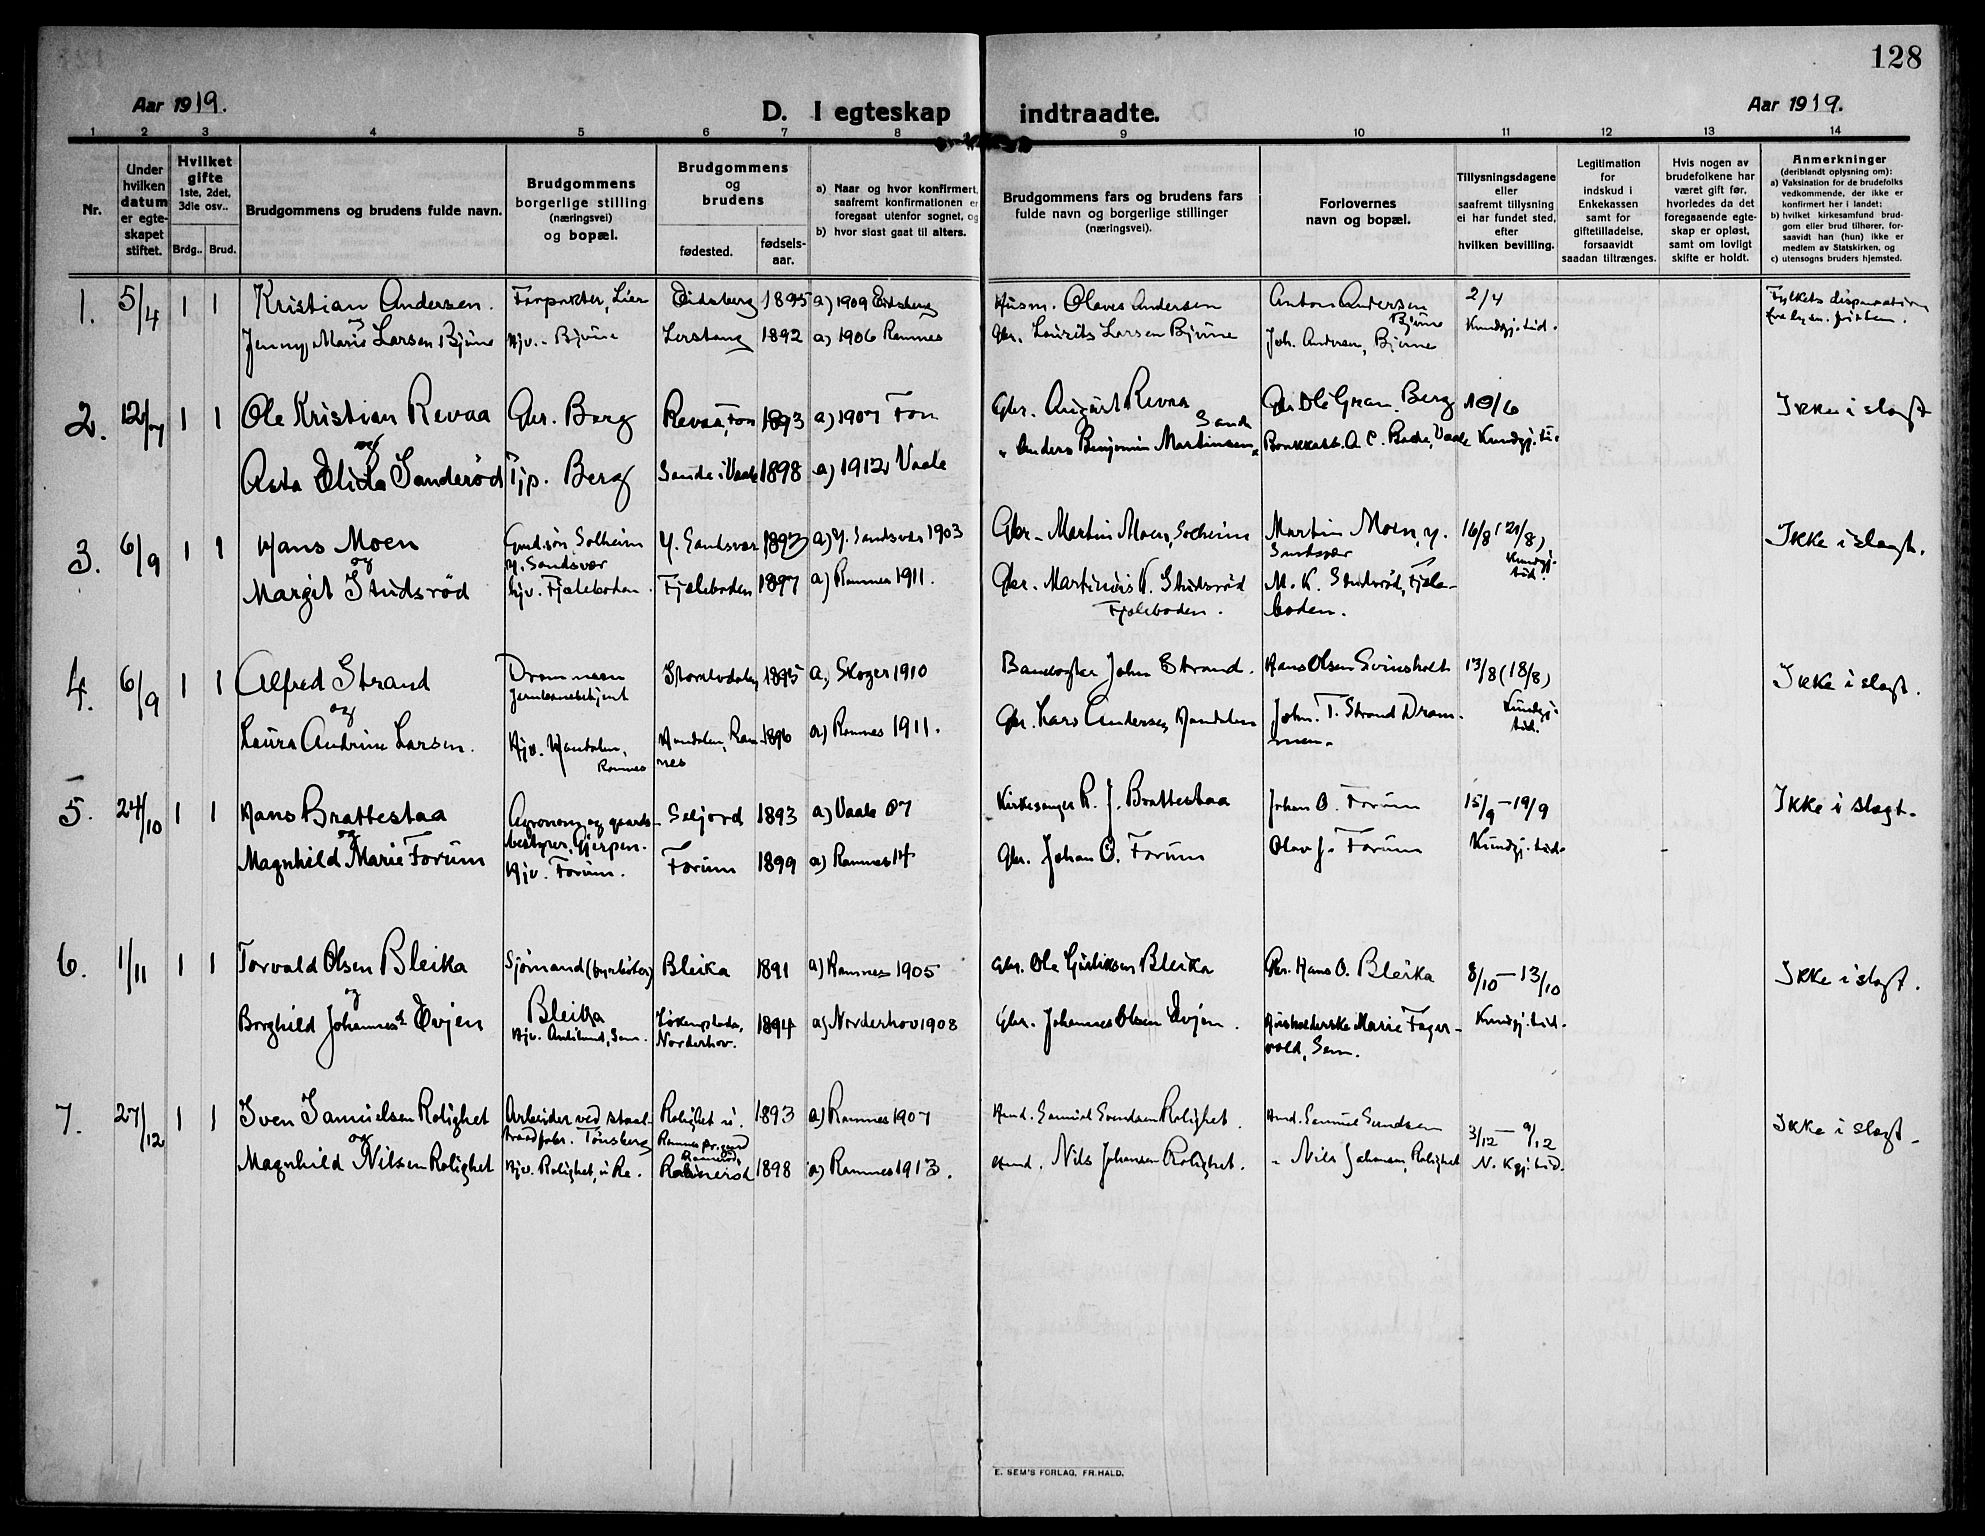 128
Aar 1919.
D. I egteskap indtraadte.
Aar 1919.
1 2 3 4 5 6 7 8 9 10 11 12 13 14
Nr.
Under hvilken datum er egteskapet stiftet.
Hvilket gifte 1ste, 2det, 3die osv..
Brdg.. Brud.
Brudgommens og brudens fulde navn.
Brudgommens borgerlige stilling (næringsvei) og bopæl.
Brudgommens og brudens
fødested. fødsels-aar.
a) Naar og hvor konfirmert, saafremt konfirmationen er foregaat utenfor sognet, og
b) hvor sidst gaat til alters.
Brudgommens fars og brudens fars fulde navn og borgerlige stillinger (næringsvei).
Forlovernes navn og bopæl.
Tillysningsdagene eller saafremt tillysning ei har fundet sted, efter hvilken bevilling.
Legitimation for indskud i Enkekassen samt for giftetilladelse, forsaavidt saadan tiltrænges.
Hvis nogen av brudefolkene har været gift før, hvorledes da det foregaaende egteskap er opløst, samt om lovligt skifte er holdt.
Anmerkninger (deriblandt oplysning om):
a) Vaksination for de brudefolks vedkommende, der ikke er konfirmert her i landet;
b) hvilket kirkesamfund brudgom eller brud tilhører, forsaavidt han (hun) ikke er medlem av Statskirken, og
c) utensogns bruders hjemsted.
1. 5/4 1 1 Kristian Andersen. Forpakter, Lier Eidsberg 1895 a) 1909 Eidsberg Husm. Olaves Andersen Anton Andersen Bjune 2/4
og
Jenny Marie Larsen Bjune Hjv. - Bjune 1892 a) 1906 Ramnes Gbr. Laurits Larsen Bjune Joh. Andersen, Bjune Kundgj. tid.
2. 12/7 1 1 Ole Kristian Revaa Gbr. Berg Revaa, Fon 1893 a) 1907 Fon Gbr. August Revaa Berg 10/6 Ikke i slegt
og
Asta Elida Sanderød Tjp. Berg Sande i Vaale 1898 a) 1912 Vaale " Anders Benjamin Martinsen, Sande Kundgj. ti.
3. 6/9 1 1 Hans Moen Gaardsøn Solheim Y. Sandsvær Y. Sandsvær 1893 a) Y. Sandsvær 1903 Gbr - Martin Moen, Solheim Martin Moen, Y. Sandsvær 16/8 (21/8) Ikke i slegt.
og
Margit Studsrød Hjv. Fjæleboden. Fjæleboden 1897 a) Ramnes 1911. Gbr. Martinius K. Studsrød Fjæleboden. M. K. Studsrød, Fjæleboden. Kundgj. tid.
4. 6/9 1 1 Alfred Strand Drammen Jernbanebetjent 1895 a) Skoger 1910 Banevogter John Strand. Hans Olsen Svinsholt 13/8 (18/8) Ikke i slegt.
og
Laura Andrine Larsen. Hjv. Handalen, Ramnes Handalen, Ramnes 1896 a) Ramnes 1911. Gbr. Lars Andersen, Handalen John. T. Strand Drammen. Kundgj. tid.
5. 24/10 1 1 Hans Brattestaa Agronom og gaardsbestyrer, Gjerpen. Seljord 1893 a) Vaale 07 Kirkesanger R. J. Brattestaa Johan O. Forum 15/9 - 19/9 Ikke i slegt.
og
Magnhild Marie Forum Hjv. Forum. Forum 1899 a) Ramnes 14 Gbr. Johan O. Forum Olav J. Forum Kundgj. tid.
6. 1/11 1 1 Torvald Olsen Bleika Sjømand (fyrbøter) Bleika Bleika 1891 a) Ramnes 1905 Gbr. Ole Bleika Gbr. Hans O. Bleika 8/10 - 13/10 Ikke i slegt.
og
Borghild Johannesd. Evjen Hjv. Sem. Norderhov. 1894 a) Norderhov 1908 Gbr. Johannes Olsen Evjen. Husholderske Marie Fagervold, Sem. Kundgj. tid.
7. 27/12 1 1 Sven Samuelsen Rolighet Arbeider ved staaltraadfabr. Tønsberg Rolighet i Ramnes pr.gaard 1893 a) Ramnes 1907 Arbd. Samuel Svendsen Rolighet. Arbd. Samuel Svendsen 3/12 - 9/12 Ikke i slegt.
og
Magnhild Nilsen Rolighet Hjv. Rolighet, i Re. 1898 a) Ramnes 1913. Arbd. Nils Johansen Rolighet. " Nils Johansen, Rolighet N. Kgj. tid.
E. SEM'S FORLAG, FR.HALD.